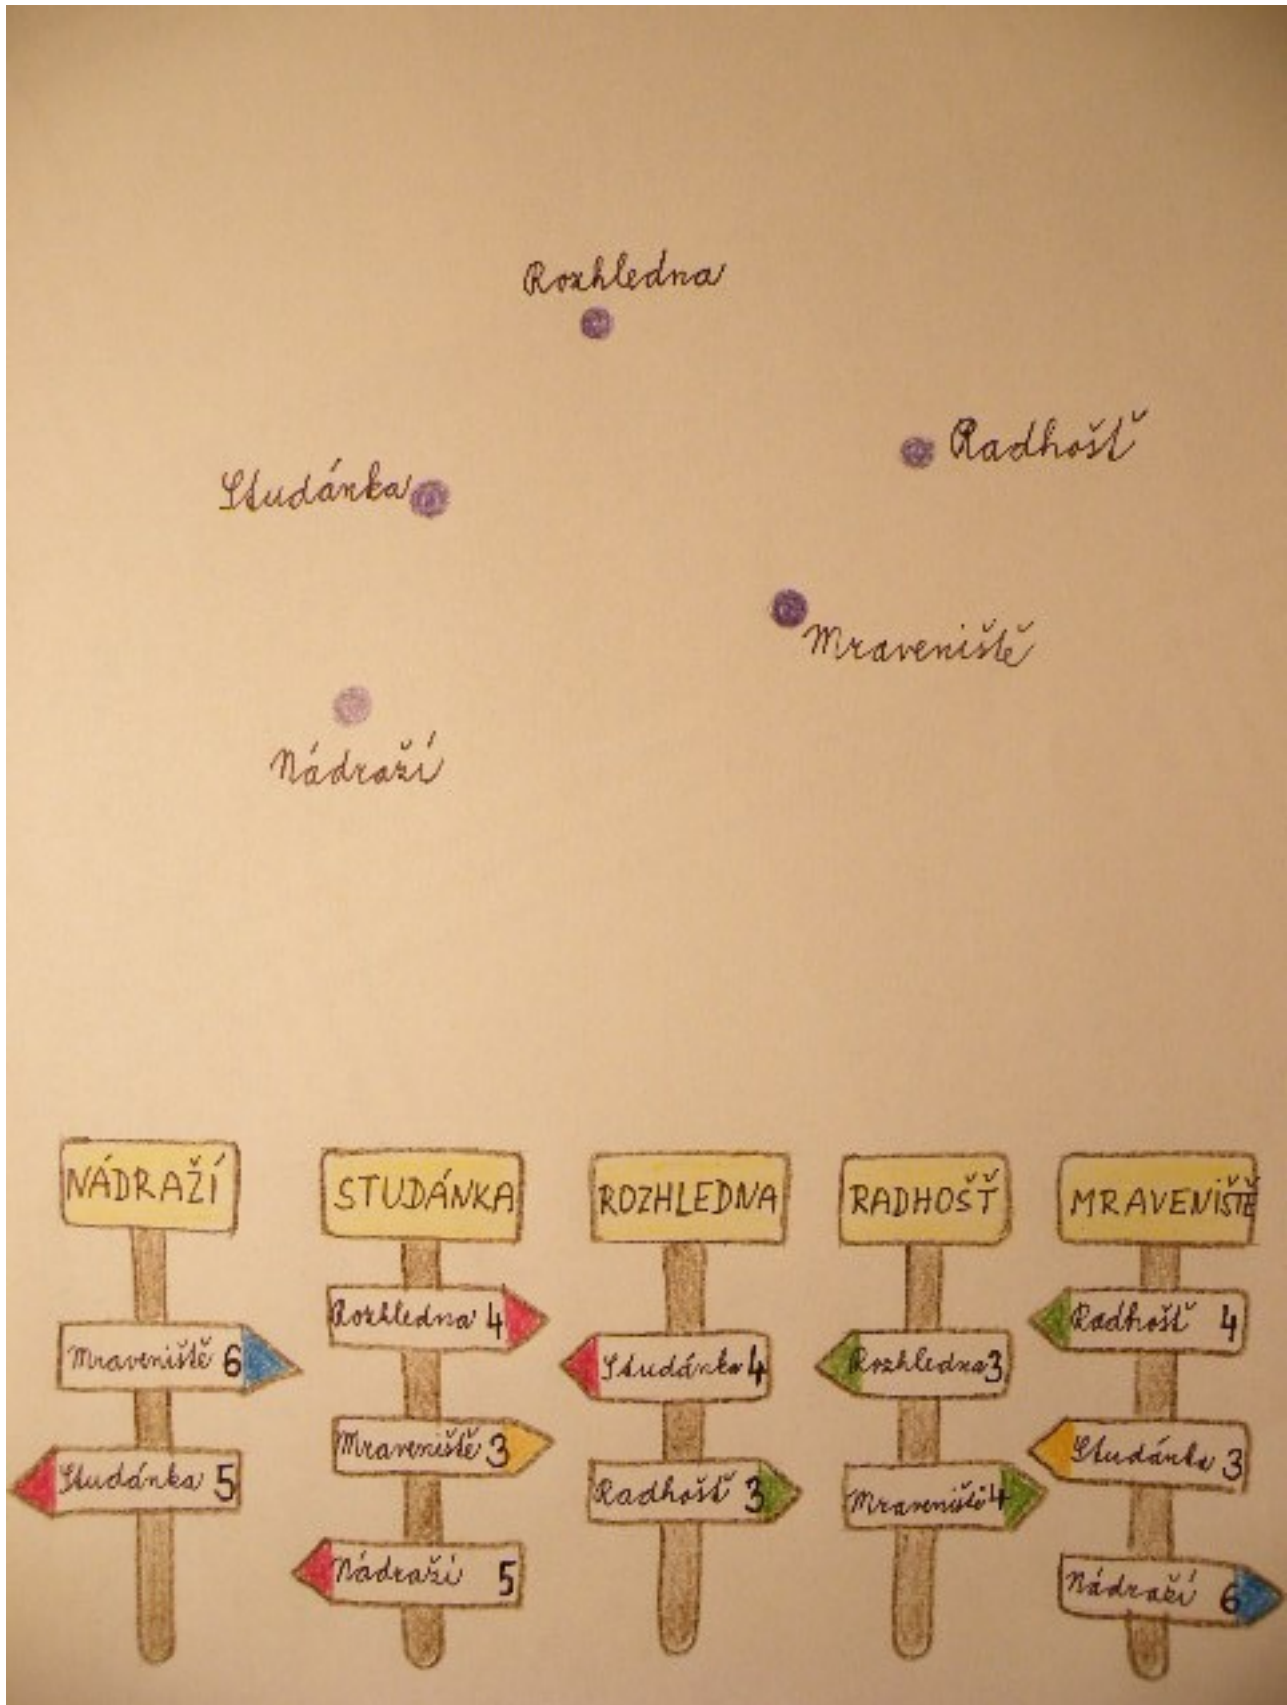 Rozhledna
Radhošť
Studánka
Mraveniště
Nádraží
NÁDRAŽÍ
Mraveniště 6
Studánka 5
STUDÁNKA
Rozhledna 4
Mraveniště 3
Nádraží 5
ROZHLEDNA
Studánka 4
Radhošť 3
RADHOŠŤ
Rozhledna 3
Mraveniště 4
MRAVENIŠTĚ
Radhošť 4
Studánka 3
Nádraží 6